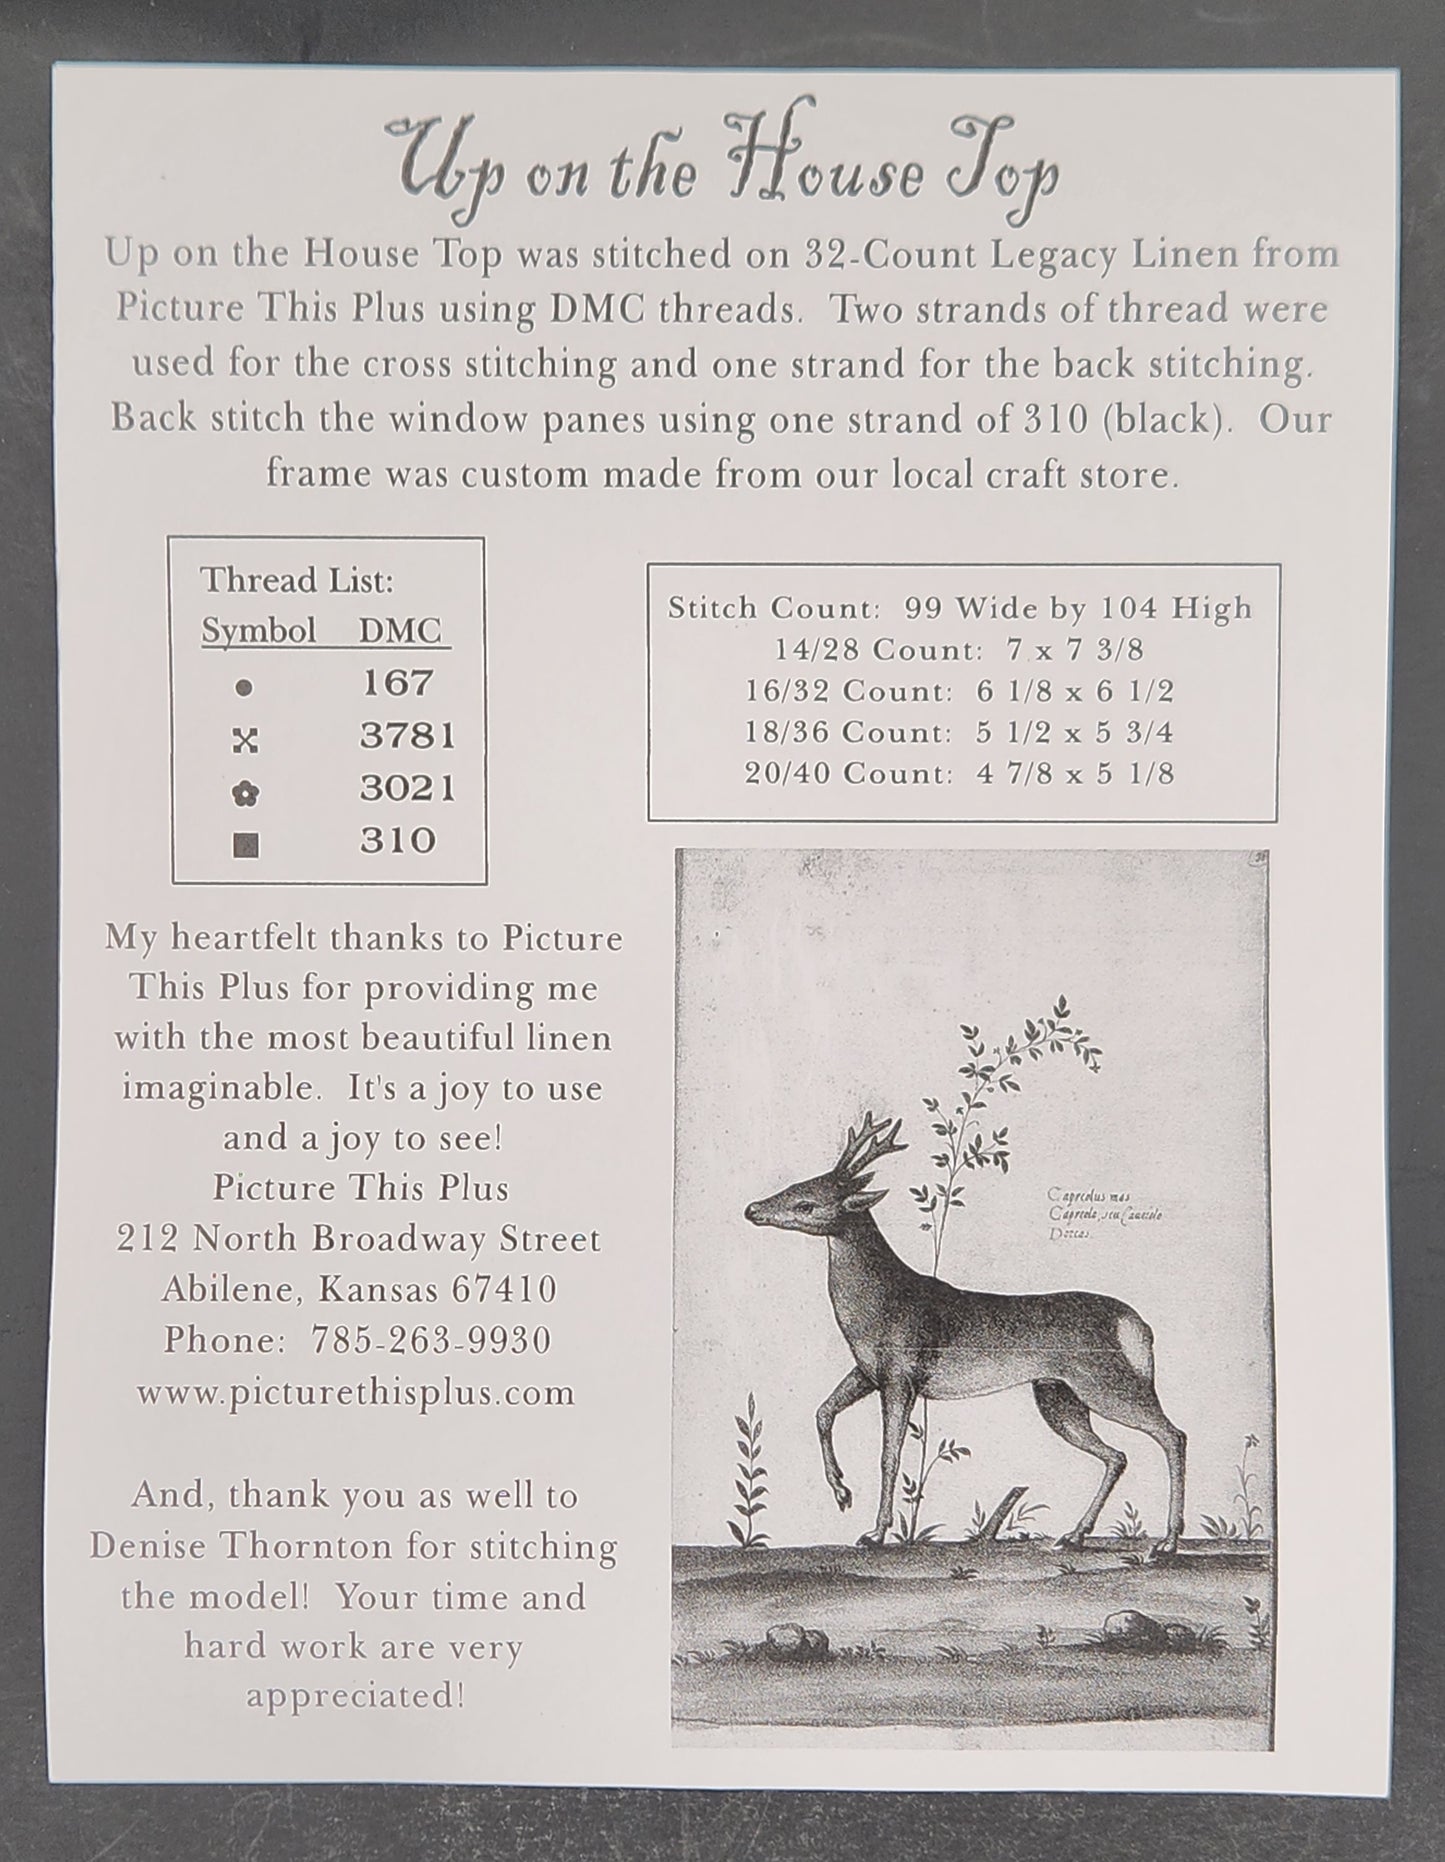 Up on the House Top
Up on the House Top was stitched on 32-Count Legacy Linen from
Picture This Plus using DMC threads.  Two strands of thread were
used for the cross stitching and one strand for the back stitching.
Back stitch the window panes using one strand of 310 (black).  Our
frame was custom made from our local craft store.
Thread List:
Symbol DMC
167
3781
3021
310
Stitch Count:  99 Wide by 104 High
14/28 Count:  7 x 7 3/8
16/32 Count:  6 1/8 x 6 1/2
18/36 Count:  5 1/2 x 5 3/4
20/40 Count:  4 7/8 x 5 1/8
My heartfelt thanks to Picture
This Plus for providing me
with the most beautiful linen
imaginable.  It's a joy to use
and a joy to see!
Picture This Plus
212 North Broadway Street
Abilene, Kansas 67410
Phone:  785-263-9930
www.picturethisplus.com
And, thank you as well to
Denise Thornton for stitching
the model!  Your time and
hard work are very
appreciated!
Capreolus mas
Dorcas